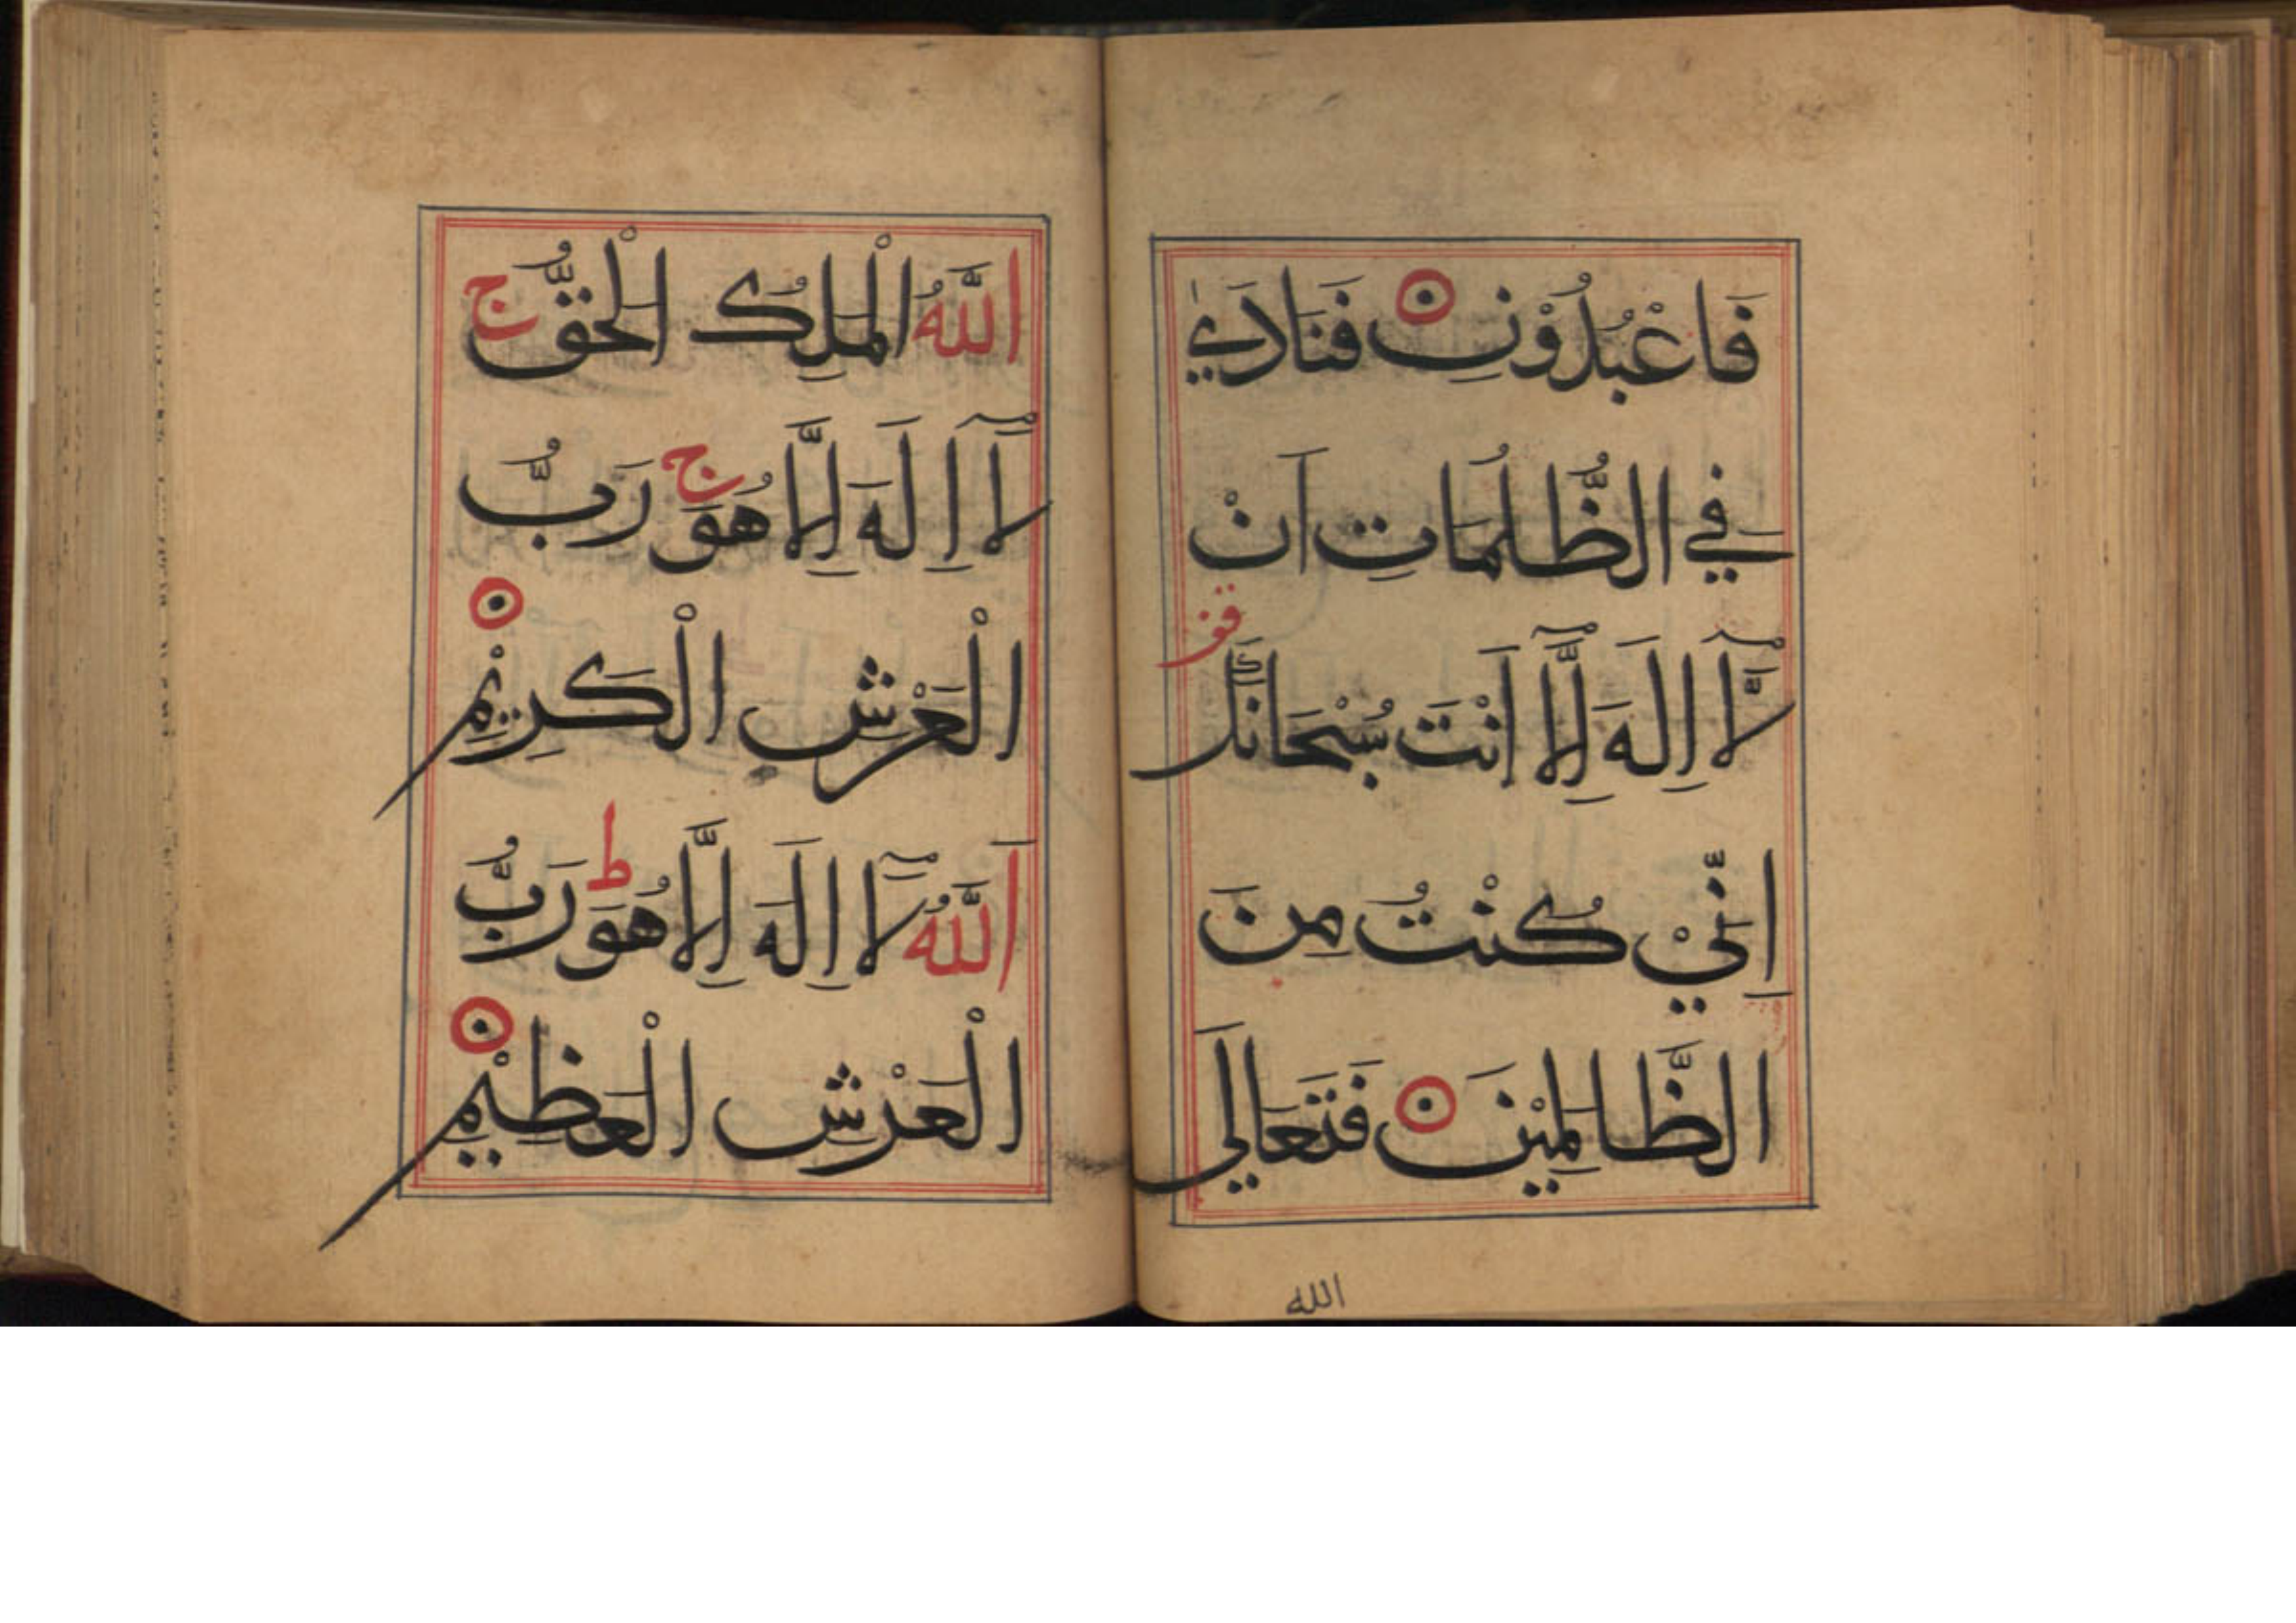 فَاعْبُدُوْنِ فَنَادٰي
فِي الظُّلُمَاتِ اَنْ
لَّآ اِلَهَ اِلَّآ اَنْتَ سُبْحَانَكَ قف
اِنِّيْ كُنْتُ مِنَ
الظَّالِمِيْنَ فَتَعَالَي
الله
اللَّهُ الْمَلِكُ الْحَقُّ ج
لَآ اِلَهَ اِلَّا هُوَ ج رَبُّ
الْعَرْشِ الْكَرِيْمِ
اَللَّهُ لَآ اِلَهَ اِلَّا هُوَ ط رَبُّ
الْعَرْشِ الْعَظِيْمِ